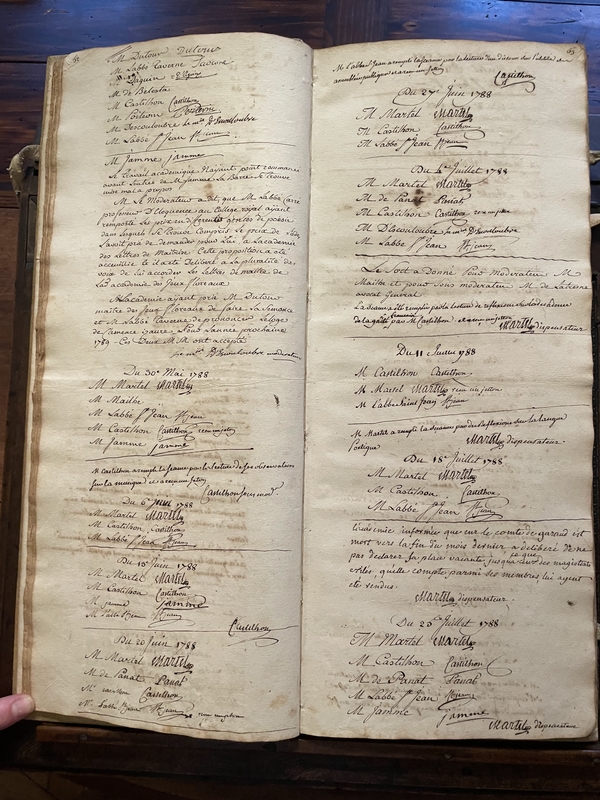 M Dutour Dutour
M. Labbé Taverne Taverne
M. de Belesta
M. Castilhon Castilhon
M. Poitevin Poitevin
M. Descouloubre le m.is D'Escouloubre
M. Labbé S.t Jean St jean
M. Jamme jamme
Le travail academique n'ayant point commencé
avant l'entrée de M. Jamme, la Barre se trouve
mal a propos
M. Le Moderateur a dit, que M. Labbé Carré
professeur D'Eloquence au College royal ayant
remporté les prix en différents genres de poésie
dans lesquels se trouve compris le prix de l'ode
l'avoit prié de demander pour lui, a L'academie
des Lettres de Maitrise. Cette proposition a été
accueillie, il a été Delibéré a la pluralité des
voix de lui accorder des Lettres de maitre de
L'academie des jeux floraux
L'Academie ayant prié M. Dutour
maitre des jeux floraux de faire la Semonce
et M. Labbé Taverne de prononcer L'éloge
de Clemence isaure, pour L'année prochaine
1789. Ces Deux MM. ont accepté
le m.is D'Escouloubre moderateur
Du 30e Mai 1788
M. Martel Martel
M. Mailhe
M. Labbé S.t Jean St jean
M. Castilhon Castilhon
M. Jamme jamme
M. Castilhon a rempli la seance par la lecture de ses observations
sur la musique et a reçu un jetton
Castilhon sous mod.
Du 6e Juin 1788
M. Martel Martel
M. Castilhon Castilhon
M. Labbé S.t Jean St jean
Du 13e Juin 1788
M. Martel Martel
M. Castilhon Castilhon
M. Jamme jamme
M. Labbé St Jean St jean
Castilhon
Du 20 Juin 1788
M. Martel Martel
M. de Panat Panat
M. Castilhon Castilhon
M. Labbé St jean St jean reçu un jetton
65
M. L'abbé St Jean a rempli la seance par la lecture d'un
assemblée publique et a reçu un jetton
Castilhon
Du 27e Juin 1788
M. Martel Martel
M. Castilhon Castilhon
M. Labbé S.t Jean St jean
Du 4e Juillet 1788
M. Martel Martel
M. de Panat Panat
M. Castilhon Castilhon
M. D'Escouloubre le m.is D'Escouloubre
M. Labbé S.t Jean St jean
Le Sort a Donné Pour Moderateur M.
Mailhe et pour Sous moderateur M. de Latresne
avocat General
La seance a été remplie par la lecture de reflexions
de la gaité par M. Castilhon et a reçu un jetton
Martel dispensateur
Du 11 Juillet 1788
M. Castilhon Castilhon
M. Martel Martel reçu un jetton
M. L'abbé Saint Jean St jean
M. Martel a rempli la seance par des Reflexions sur la langue
Poétique
Martel dispensateur
Du 18e Juillet 1788
M. Martel Martel
M. Castilhon Castilhon
M. Labbé S.t Jean St jean
L'academie informée que M. le comte de garaud est
mort vers la fin du mois dernier, a délibéré de ne
pas declarer sa place vacante, jusqu'a ce que les magistrats
exilés, qu'elle compte parmi ses membres lui ayent
été rendus.
Martel dispensateur
Du 25e Juillet 1788
M. Martel Martel
M. Castilhon Castilhon
M. de Panat Panat
M. Labbé S.t Jean St jean
M. Jamme jamme
Martel dispensateur